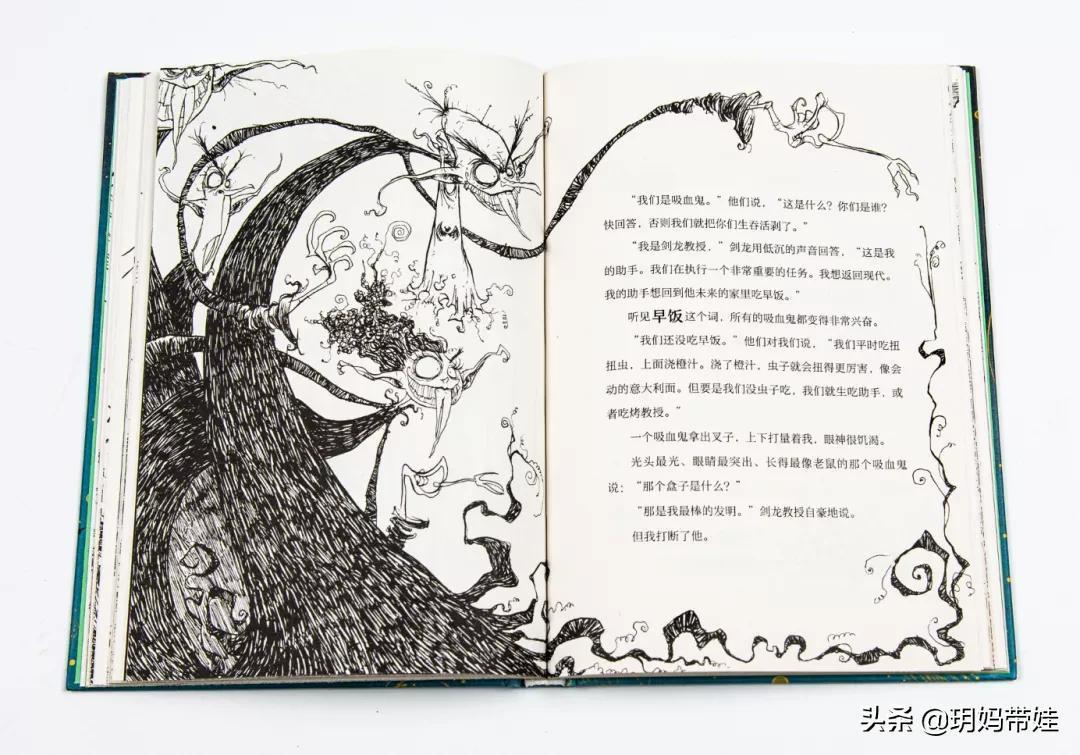 “我们是吸血鬼。”他们说，“这是什么？你们是谁？
快回答，否则我们就把你们生吞活剥了。”
“我是剑龙教授，”剑龙用低沉的声音回答，“这是我
的助手。我们在执行一个非常重要的任务。我想返回现代。
我的助手想回到他未来的家里吃早饭。”
听见早饭这个词，所有的吸血鬼都变得非常兴奋。
“我们还没吃早饭。”他们对我们说，“我们平时吃扭
扭虫，上面浇橙汁。浇了橙汁，虫子就会扭得更厉害，像会
动的意大利面。但要是我们没虫子吃，我们就生吃助手，或
者吃烤教授。”
一个吸血鬼拿出叉子，上下打量着我，眼神很饥渴。
光头最光、眼睛最突出、长得最像老鼠的那个吸血鬼
说：“那个盒子是什么？”
“那是我最棒的发明。”剑龙教授自豪地说。
但我打断了他。
头条 @玥妈带娃